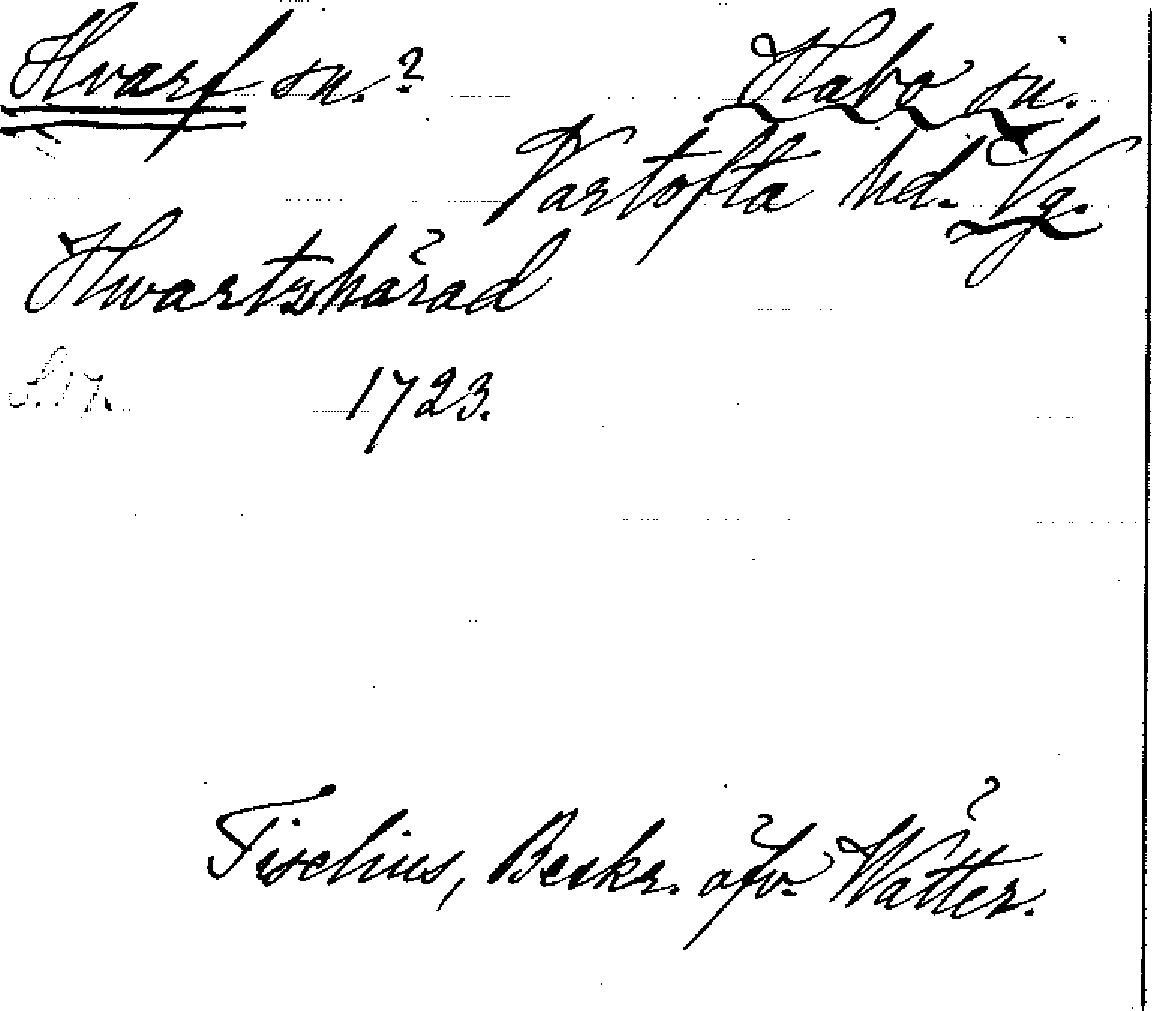 Hvarf sn.? Habo sn.
Vartofta hd. Vg.
Hwartzhärad
S. 17. 1723.
Tiselius, Beskr. öfv. Wätter.